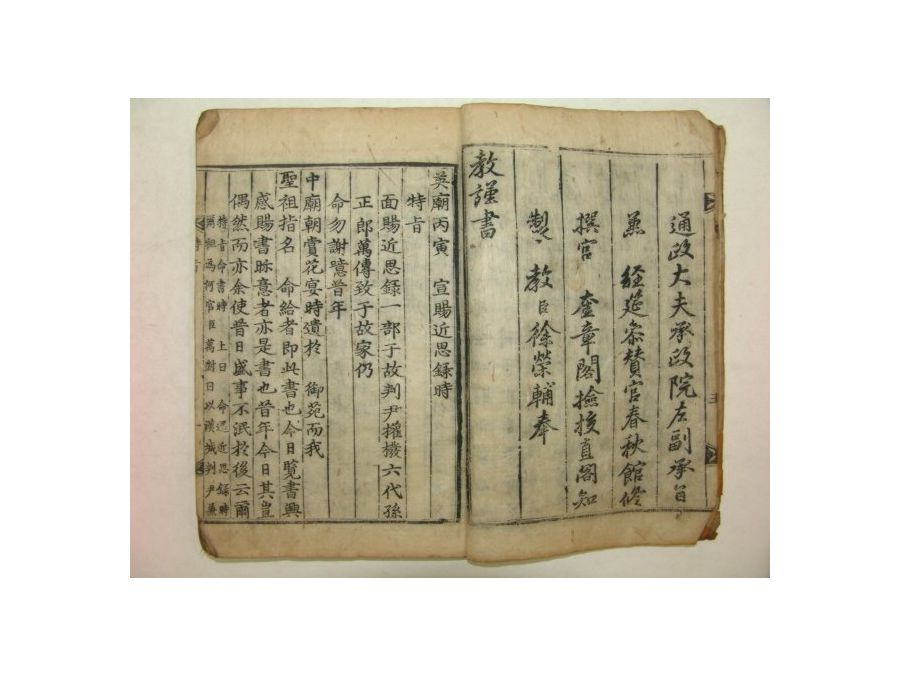 通政大夫承政院左副承旨
兼 經筵參贊官春秋館修
撰官 奎章閣撿挍直閣知
製 教臣徐榮輔奉
教謹書
英廟丙寅 宣賜近思錄時
特旨
面賜近思錄一部于故判尹權橃六代孫
正郎萬傳致于故家仍
命勿謝噫昔年
中廟朝賞花宴時遺於 御苑而我
聖祖指名 命給者即此書也今日覽書興
感賜書眎意者亦是書也昔年今日其豈
偶然而亦余使昔日盛事不泯於後云爾
特旨命書時 上曰 命還近思錄時
爾祖爲何官臣萬對曰以漢城判尹兼